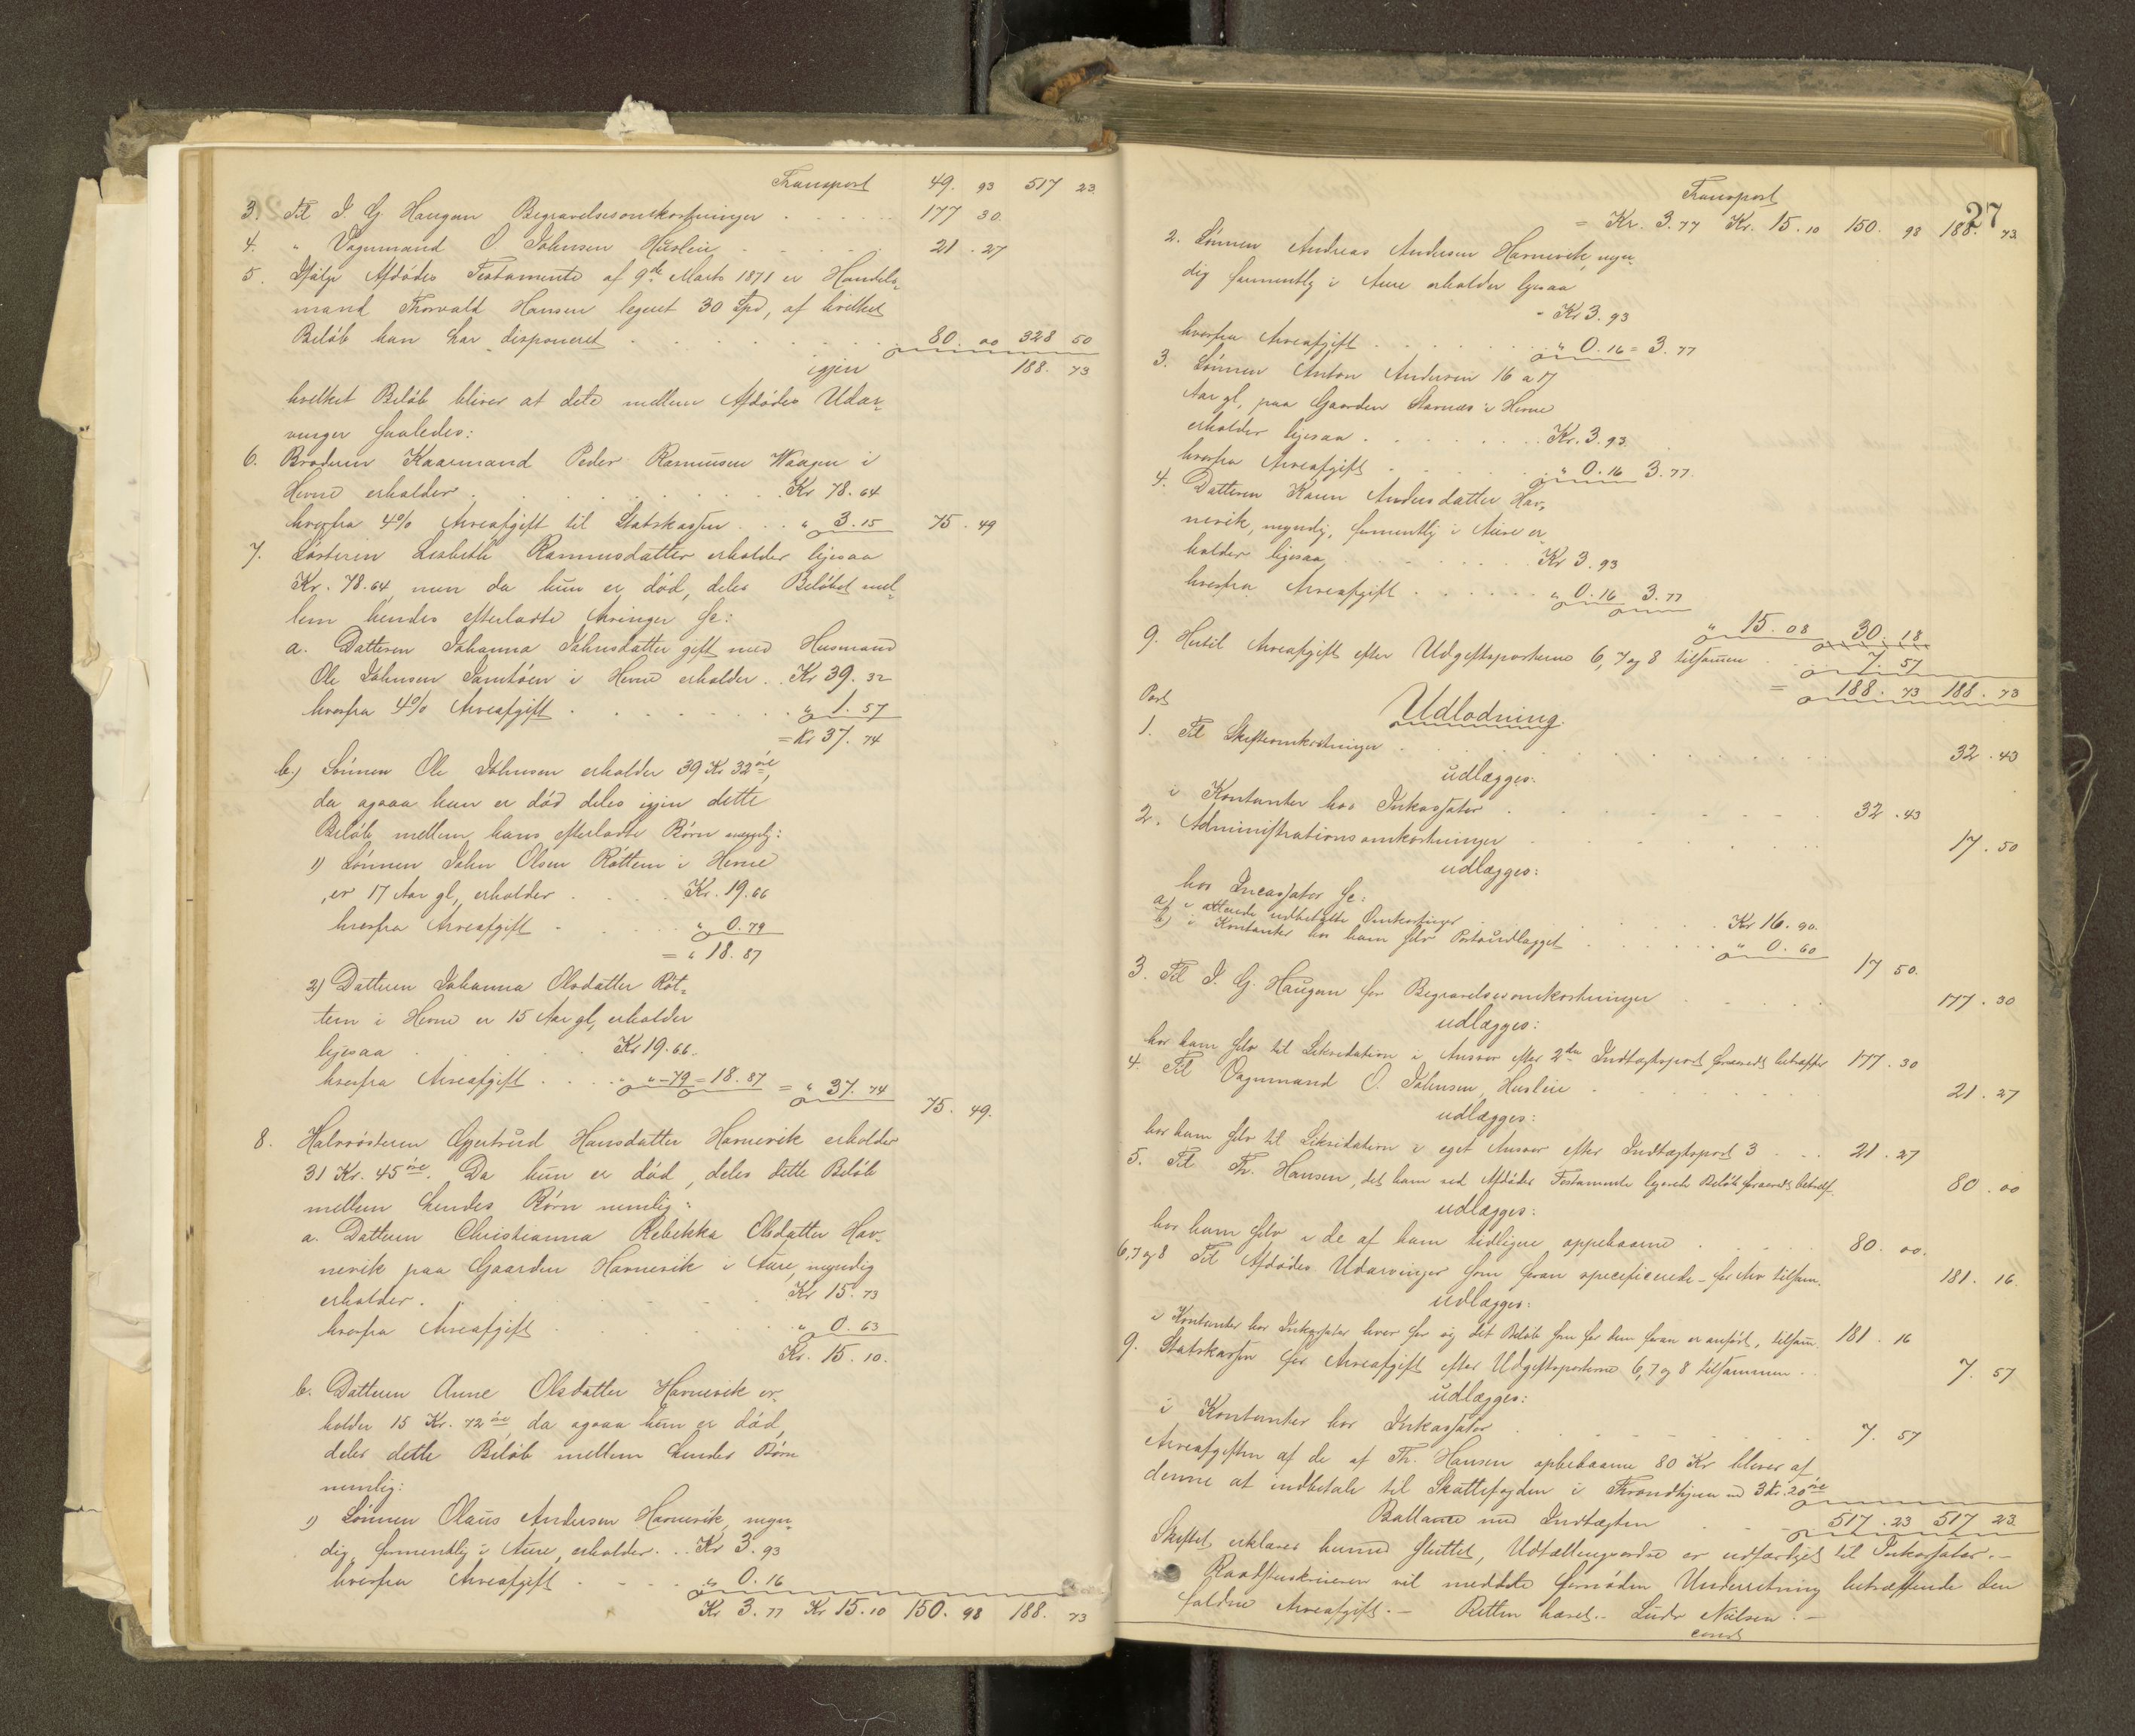 Transport 49. 93 517 23.
3. Til I. G. Haugan Begravelsesomkostninger . . . . 177 30.
4. " Vognmand O. Johnsen Husleie . . . . 21. 27
5. Ifølge Afdødes Testamente af 9de Marts 1871 er Handels-
mand Thorvald Hansen legeret 30 Spd, af hvilket
Beløb han har disponeret . . . . 80. 00 328 50
igjen 188. 73
hvilket Beløb bliver at dele mellem Afdødes Udar-
vinger saaledes:
6. Broderen Kaarmand Peder Rasmussen Waagen i
Hevne erholder . . . . Kr 78. 64
hvorfra 4% Arveafgift til Statskassen . . . " 3. 15 75. 49
7. Søsteren Lisbeth Rasmusdatter erholder ligesaa
Kr. 78. 64 men da hun er død, deles Beløbet mel-
lem hendes efterladte Arvinger se:
a. Datteren Johanna Johnsdatter gift med Husmand
Ole Johnsen Samtøen i Hevne erholder . . Kr 39. 32
hvorfra 4% Arveafgift . . . . " 1. 57
= Kr 37. 74
b.) Sønnen Ole Johnsen erholder 39 Kr 32 øre,
da ogsaa han er død deles igjen dette
Beløb mellem hans efterladte Børn neml:
1) Sønnen John Olsen Røttem i Hevne
, er 17 Aar gl, erholder . . . . Kr. 19. 66
hvorfra Arveafgift . . . . " 0. 79
= " 18. 87
2) Datteren Johanna Olsdatter Røt-
tem i Hevne er 15 Aar gl, erholder
ligesaa . . . . Kr 19. 66.
hvorfra Arveafgift . . . . " - 79 = 18. 87 = " 37. 74
75. 49.
8. Halvsøsteren Gjertrud Hansdatter Havnevik erholder
31 Kr. 45 øre. Da hun er død, deles dette Beløb
mellem hendes Børn nemlig:
a. Datteren Christianna Rebekka Olsdatter Hav-
nevik paa Gaarden Havnevik i Aure, myndig
erholder . . . . Kr 15. 73
hvorfra Arveafgift . . . . " 0. 63
Kr. 15. 10.
b. Datteren Anne Olsdatter Havnevik er-
holder 15 Kr. 72 øre, da ogsaa hun er død,
deles dette Beløb mellem hendes Børn
nemlig:
1) Sønnen Olaus Andersen Havnevik, myn-
dig, formentlig i Aure, erholder . . Kr 3. 93
hvorfra Arveafgift . . . . " 0. 16
Kr 3. 77 Kr 15. 10 150. 98 188. 73
27
Transport
= Kr. 3. 77 Kr. 15. 10 150. 98 188. 73
2. Sønnen Andreas Andersen Havnevik, myn-
dig formentlig i Aure erholder ligesaa
" Kr 3. 93
hvorfra Arveafgift . . . . " 0. 16 = 3. 77
3. Sønnen Anton Andersen 16 a 17
Aar gl, paa Gaarden Stamnæs i Hevne
erholder ligesaa . . . . Kr. 3. 93.
hvorfra Arveafgift . . . . " 0. 16 3. 77.
4. Datteren Karen Andersdatter Hav-
nevik, myndig, formentlig i Aure er-
holder ligesaa . . . . Kr 3. 93
hvorfra Arveafgift . . . . " 0. 16 3. 77
" 15. 08 30. 18
9. Hertil Arveafgift efter Udgiftsposterne 6, 7 og 8 tilsammen . . 7. 57
= 188. 73 188. 73
Post
Udlodning.
1. Til Skifteomkostninger . . . . 32. 43
udlægges:
i Kontanter hos Inkassator . . . . 32. 43
2. Administrationsomkostninger . . . . 17. 50
udlægges:
hos Incassator se:
a) i allerede udbetalte Omkostninger . . . . Kr 16. 90.
b) i Kontanter hos ham selv Portoudlægget . . . . " 0. 60
17 50.
3. Til I. G. Haugan for Begravelsesomkostninger . . . . 177. 30
udlægges:
hos ham selv til Likvidation i Ansvar efter 2den Indtægtspost forsaavidt betræffer 177. 30
4. Til Vognmand O. Johnsen, Husleie . . . . 21. 27
udlægges:
hos ham selv til Likvidation i eget Ansvar efter Indtægtspost 3 . . . 21. 27
5. Til Th. Hansen, det ham ved Afdødes Testamente legerede Beløb forsaavidt betræf. 80. 00
udlægges:
hos ham selv i de af ham tidligere oppebaarne . . . . 80. 00.
6, 7 og 8 Til Afdødes Udarvinger som foran specificerede - for Arv tilsam. 181. 16.
udlægges:
i Kontanter hos Inkassator hver for sig det Beløb som for dem foran er anført, tilsam. 181. 16
9. Statskassen for Arveafgift efter Udgiftsposterne 6, 7 og 8 tilsammen . . 7. 57
udlægges:
i Kontanter hos Inkassator . . . . 7. 57
Arveafgiften af de af Th. Hansen opbebaarne 80 Kr bliver af
denne at indbetale til Skattefogden i Throndhjem md 3 Kr. 20 øre
Ballance med Indtægten . . . 517. 23 517 23.
Skiftet erklæres hermed sluttet, Udtællingsordre er udfærdiget til Inkassator. -
Raadstueskriveren vil meddele fornøden Underretning betræffende den
faldne Arveafgift. - Retten hævet. - Ludv Nielsen. -
const